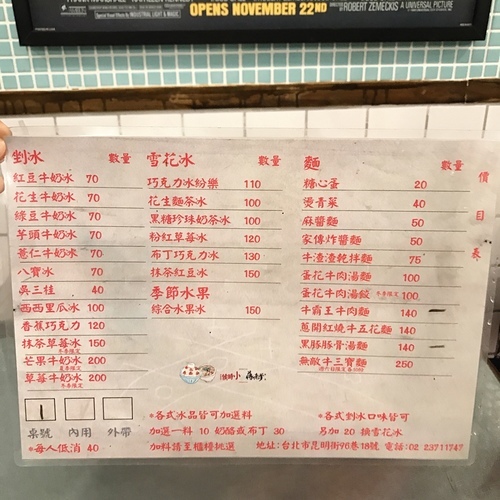 OPENS NOVEMBER 22ND
ROBERT ZEMECKIS
A UNIVERSAL PICTURE
剉冰 數量
紅豆牛奶冰 70
花生牛奶冰 70
綠豆牛奶冰 70
芋頭牛奶冰 70
薏仁牛奶冰 70
八寶冰 70
吳三桂 40
西西里瓜冰 100
香蕉巧克力 120
抹茶草莓冰 150
冬季限定
芒果牛奶冰 200
夏季限定
草莓牛奶冰 200
冬季限定
雪花冰 數量
巧克力冰紛樂 110
花生麵茶冰 100
黑糖珍珠奶茶冰 100
粉紅草莓冰 120
布丁巧克力冰 130
抹茶紅豆冰 150
季節水果
綜合水果冰 150
麵 數量
糖心蛋 20
燙青菜 40
麻醬麵 50
家傳炸醬麵 50
牛渣渣乾拌麵 75
蛋花牛肉湯麵 100
蛋花牛肉湯餃 冬季限定 100
牛霸王牛肉麵 140
蔥開紅燒牛五花麵 140
黑豚豚骨湯麵 140
無敵牛三寶麵 250
價目表
桌號 內用 外帶
*每人低消 40
*各式冰品皆可加選料
加選一料 10 奶酪或布丁 30
加料請至櫃檯挑選
*各式剉冰口味皆可
另加 20 換雪花冰
地址:台北市昆明街96巷18號 電話:02 23711747